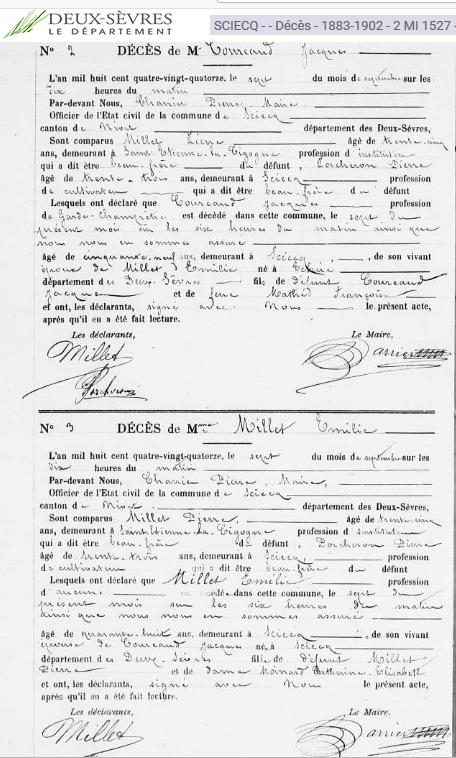 DEUX-SÈVRES
LE DÉPARTEMENT
SCIECQ - - Décès - 1883-1902 - 2 MI 1527 -
N° 2 DÉCÈS de M Courcaud Jacques
L'an mil huit cent quatre-vingt-quatorze, le sept du mois de septembre sur les
dix heures du matin
Par-devant Nous, Charrier Pierre, Maire
Officier de l'Etat civil de la commune de Sciecq
canton de Niort département des Deux-Sèvres,
Sont comparus Millet Pierre âgé de trente-cinq
ans, demeurant à Saint-Etienne-la-Cigogne profession d'instituteur
qui a dit être beau-frère du défunt, Porcheron Pierre
âgé de trente-trois ans, demeurant à Sciecq profession
de cultivateur qui a dit être beau-frère du défunt
Lesquels ont déclaré que Courcaud Jacques profession
de Garde-Champêtre est décédé dans cette commune, le sept du
présent mois sur les six heures du matin ainsi que
nous nous en sommes assuré
âgé de cinquante-neuf ans, demeurant à Sciecq, de son vivant
époux de Millet Emilie né à
département des Deux-Sèvres fils de défunt Courcaud
Jacques et de feue Françoise
et ont, les déclarants, signé avec Nous le présent acte,
après qu'il en a été fait lecture.
Les déclarants, Le Maire,
Millet
Porcheron
N° 3 DÉCÈS de Mme Millet Emilie
L'an mil huit cent quatre-vingt-quatorze, le sept du mois de septembre sur les
dix heures du matin
Par-devant Nous, Charrier Pierre, Maire,
Officier de l'Etat civil de la commune de Sciecq
canton de Niort département des Deux-Sèvres,
Sont comparus Millet Pierre, âgé de trente-cinq
ans, demeurant à Saint-Etienne-la-Cigogne profession d'instituteur
qui a dit être beau-frère du défunt, Porcheron Pierre
âgé de trente-trois ans, demeurant à Sciecq, profession
de cultivateur qui a dit être beau-frère du défunt
Lesquels ont déclaré que Millet Emilie profession
d'aucune décédé dans cette commune, le sept du
présent mois sur les six heures du matin
ainsi que nous nous en sommes assuré
âgé de quarante-huit ans, demeurant à Sciecq, de son vivant
épouse de Courcaud Jacques né à Sciecq
département des Deux-Sèvres fille de défunt Millet
Pierre et de dame Moinard Catherine Elisabeth
et ont, les déclarants, signé avec Nous le présent acte,
après qu'il en a été fait lecture.
Les déclarants, Le Maire,
Millet